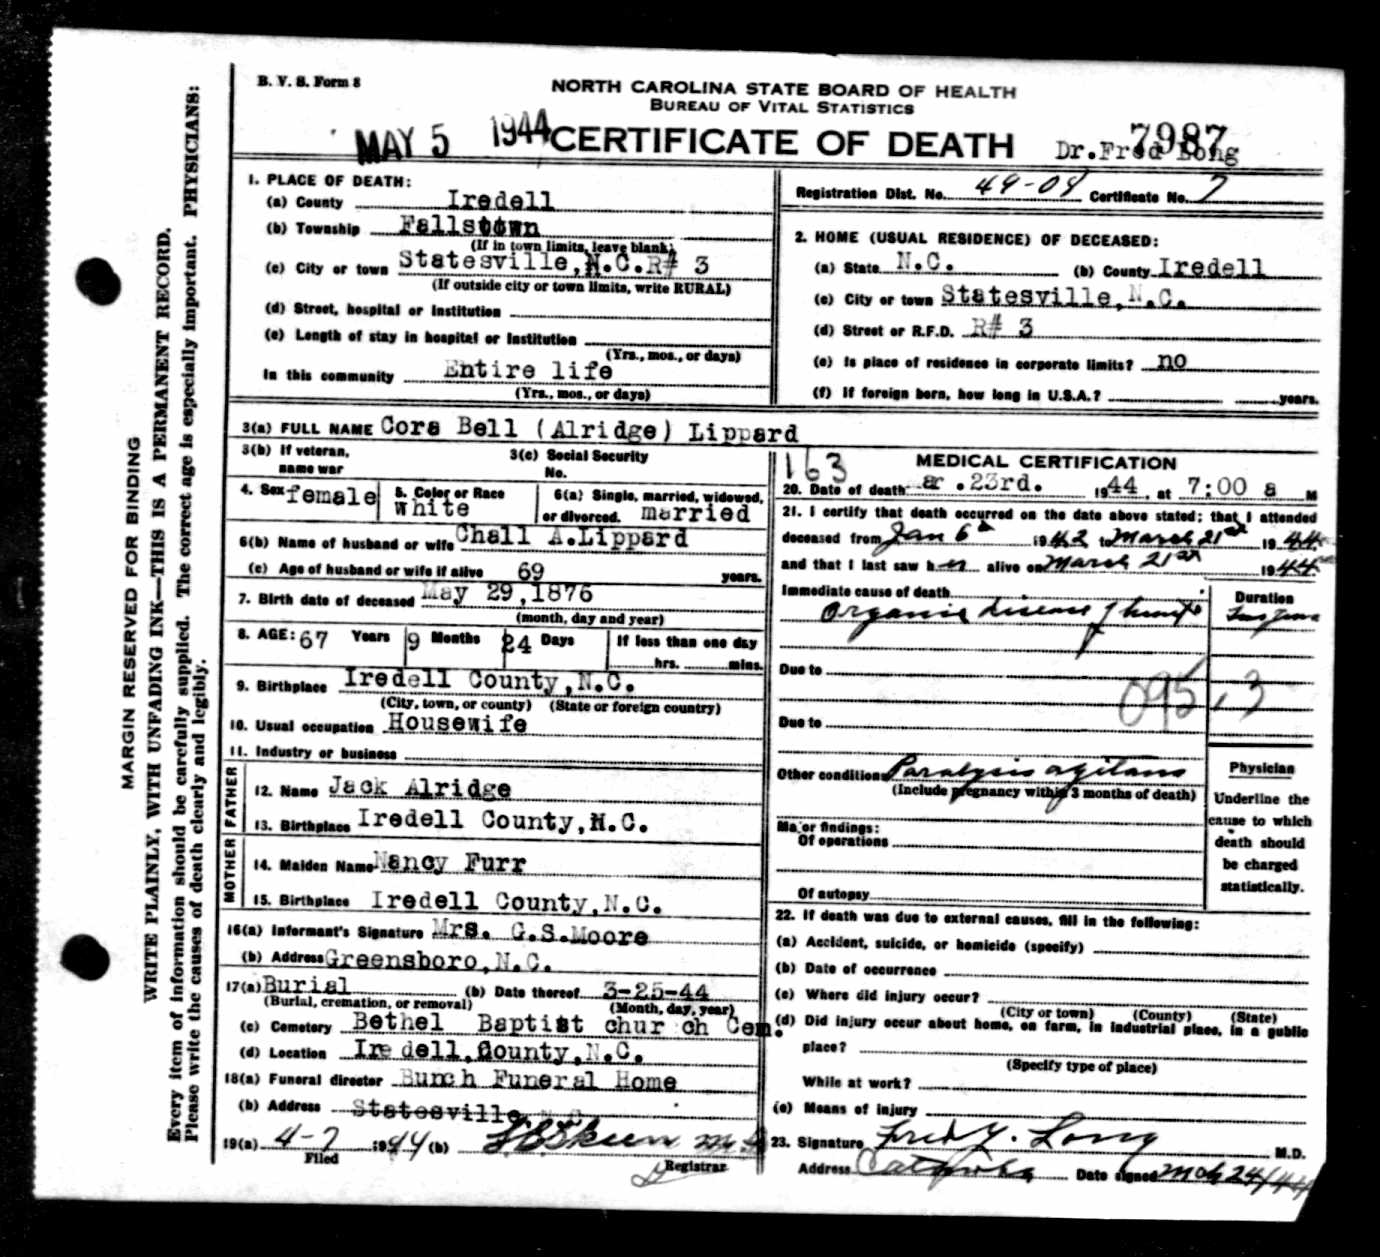 B. V. S. Form 8
NORTH CAROLINA STATE BOARD OF HEALTH
BUREAU OF VITAL STATISTICS
MAY 5 1944 CERTIFICATE OF DEATH 7987
Dr.Fred Long
MARGIN RESERVED FOR BINDING
WRITE PLAINLY, WITH UNFADING INK—THIS IS A PERMANENT RECORD.
Every item of information should be carefully supplied. The correct age is especially important. PHYSICIANS:
Please write the causes of death clearly and legibly.
1. PLACE OF DEATH:
(a) County Iredell
(b) Township Fallstown
(If in town limits, leave blank)
(c) City or town Statesville,N.C.R# 3
(If outside city or town limits, write RURAL)
(d) Street, hospital or institution
(e) Length of stay in hospital or institution
(Yrs., mos., or days)
In this community Entire life
(Yrs., mos., or days)
Registration Dist. No. 49-09 Certificate No. 7
2. HOME (USUAL RESIDENCE) OF DECEASED:
(a) State N.C. (b) County Iredell
(c) City or town Statesville,N.C.
(d) Street or R.F.D. R# 3
(e) Is place of residence in corporate limits? no
(f) If foreign born, how long in U.S.A.? years.
3(a) FULL NAME Cora Bell (Alridge) Lippard
3(b) If veteran, name war
3(c) Social Security No.
4. Sex female
5. Color or Race White
6(a) Single, married, widowed, or divorced. married
6(b) Name of husband or wife Chall A.Lippard
(c) Age of husband or wife if alive 69 years.
7. Birth date of deceased May 29,1876
(month, day and year)
8. AGE: 67 Years 9 Months 24 Days If less than one day
hrs. mins.
9. Birthplace Iredell County,N.C.
(City, town, or county) (State or foreign country)
10. Usual occupation Housewife
11. Industry or business
FATHER
12. Name Jack Alridge
13. Birthplace Iredell County,N.C.
MOTHER
14. Maiden Name Nancy Furr
15. Birthplace Iredell County,N.C.
16(a) Informant's Signature Mrs. G.S.Moore
(b) Address Greensboro,N.C.
17(a) Burial (b) Date thereof 3-25-44
(Burial, cremation, or removal) (Month, day, year)
(c) Cemetery Bethel Baptist chur ch Cem.
(d) Location Ire dell,County,N.C.
18(a) Funeral director Bunch Funeral Home
(b) Address Statesville,N.C.
19(a) 4-7 1944 (b)
Filed Registrar
163 MEDICAL CERTIFICATION
20. Date of death ar .23rd. 1944, at 7:00 a M
21. I certify that death occurred on the date above stated; that I attended
deceased from Jan 6th 1942 to March 21st 1944
and that I last saw her alive on March 21st 1944
Immediate cause of death Duration
Organic disease of heart
Due to
095.3
Due to
Other conditions Paralysis agitans
(Include pregnancy within 3 months of death)
Major findings:
Of operations
Of autopsy
Physician
Underline the
cause to which
death should
be charged
statistically.
22. If death was due to external causes, fill in the following:
(a) Accident, suicide, or homicide (specify)
(b) Date of occurrence
(c) Where did injury occur?
(City or town) (County) (State)
(d) Did injury occur about home, on farm, in industrial place, in a public
place?
(Specify type of place)
While at work?
(e) Means of injury
23. Signature Fred Y. Long M.D.
Address Catawba Date signed Mch 24/44